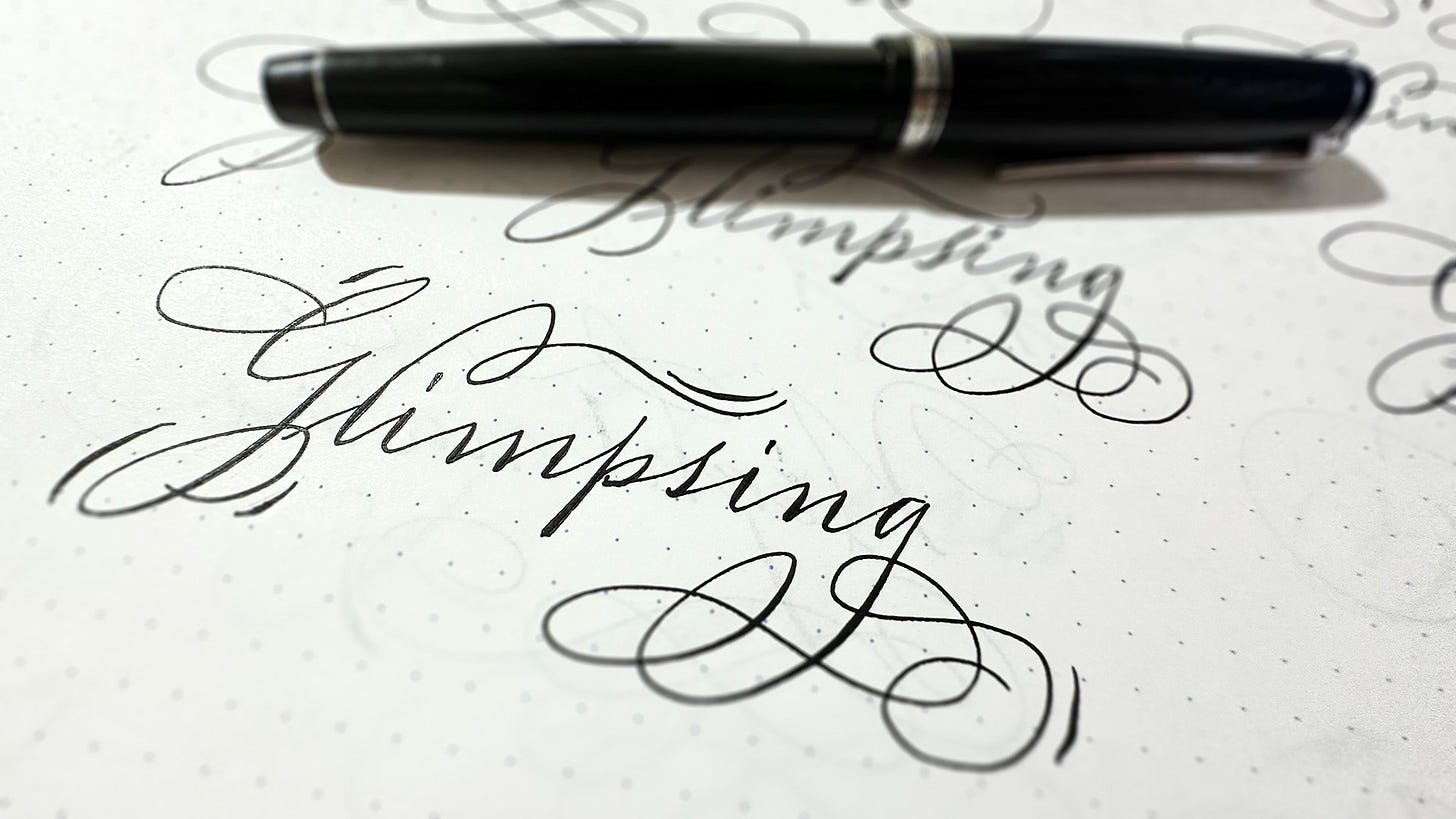 Glimpsing
Glimpsing